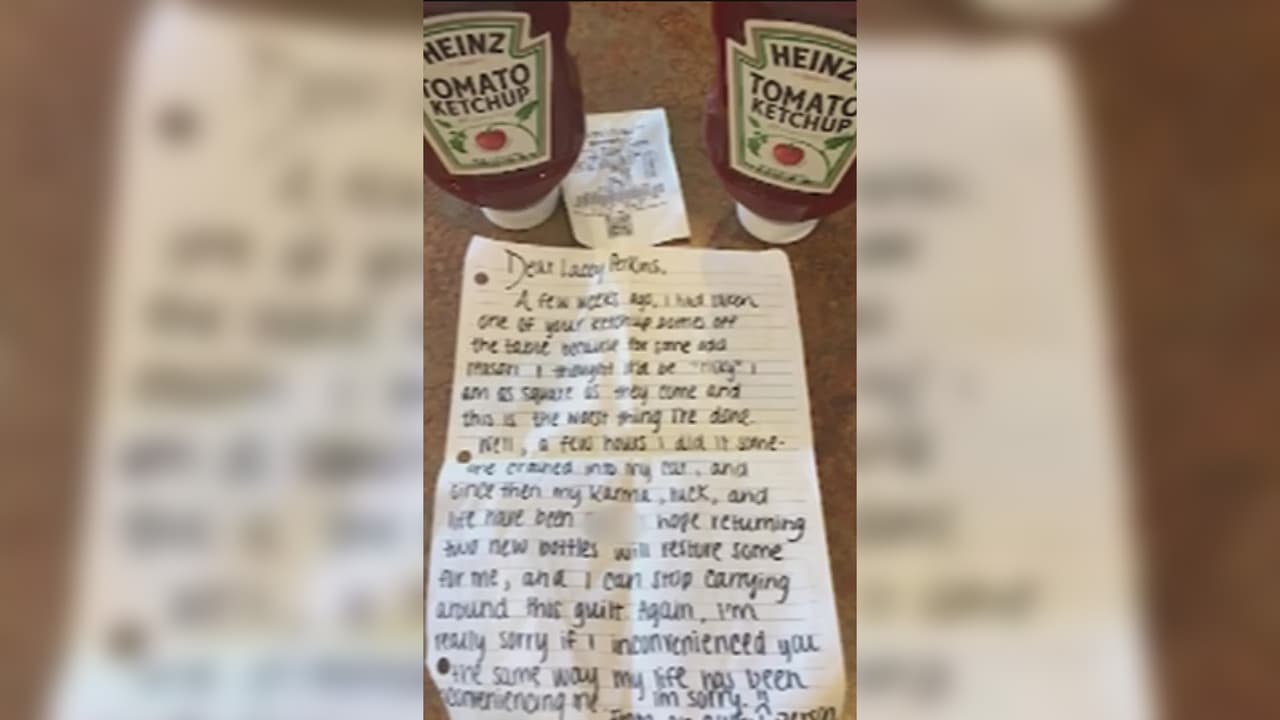 HEINZ
TOMATO
KETCHUP
HEINZ
TOMATO
KETCHUP
Dear Lacey Perkins,
A few weeks ago, I had taken
one of your ketchup off
the table because for some odd
reason I thought it'd be "risky" I
am as square as they come and
this is the worst thing I've done.
Well, a few hours I did it some-
one crashed into my car, and
since then my karma, luck, and
life have been hope returning
two new bottles will restore some
for me, and I can stop carrying
around this guilt Again, I'm
really sorry if I inconvenienced you
the same way my life has been
conveniencing me. I'm sorry.
From an person